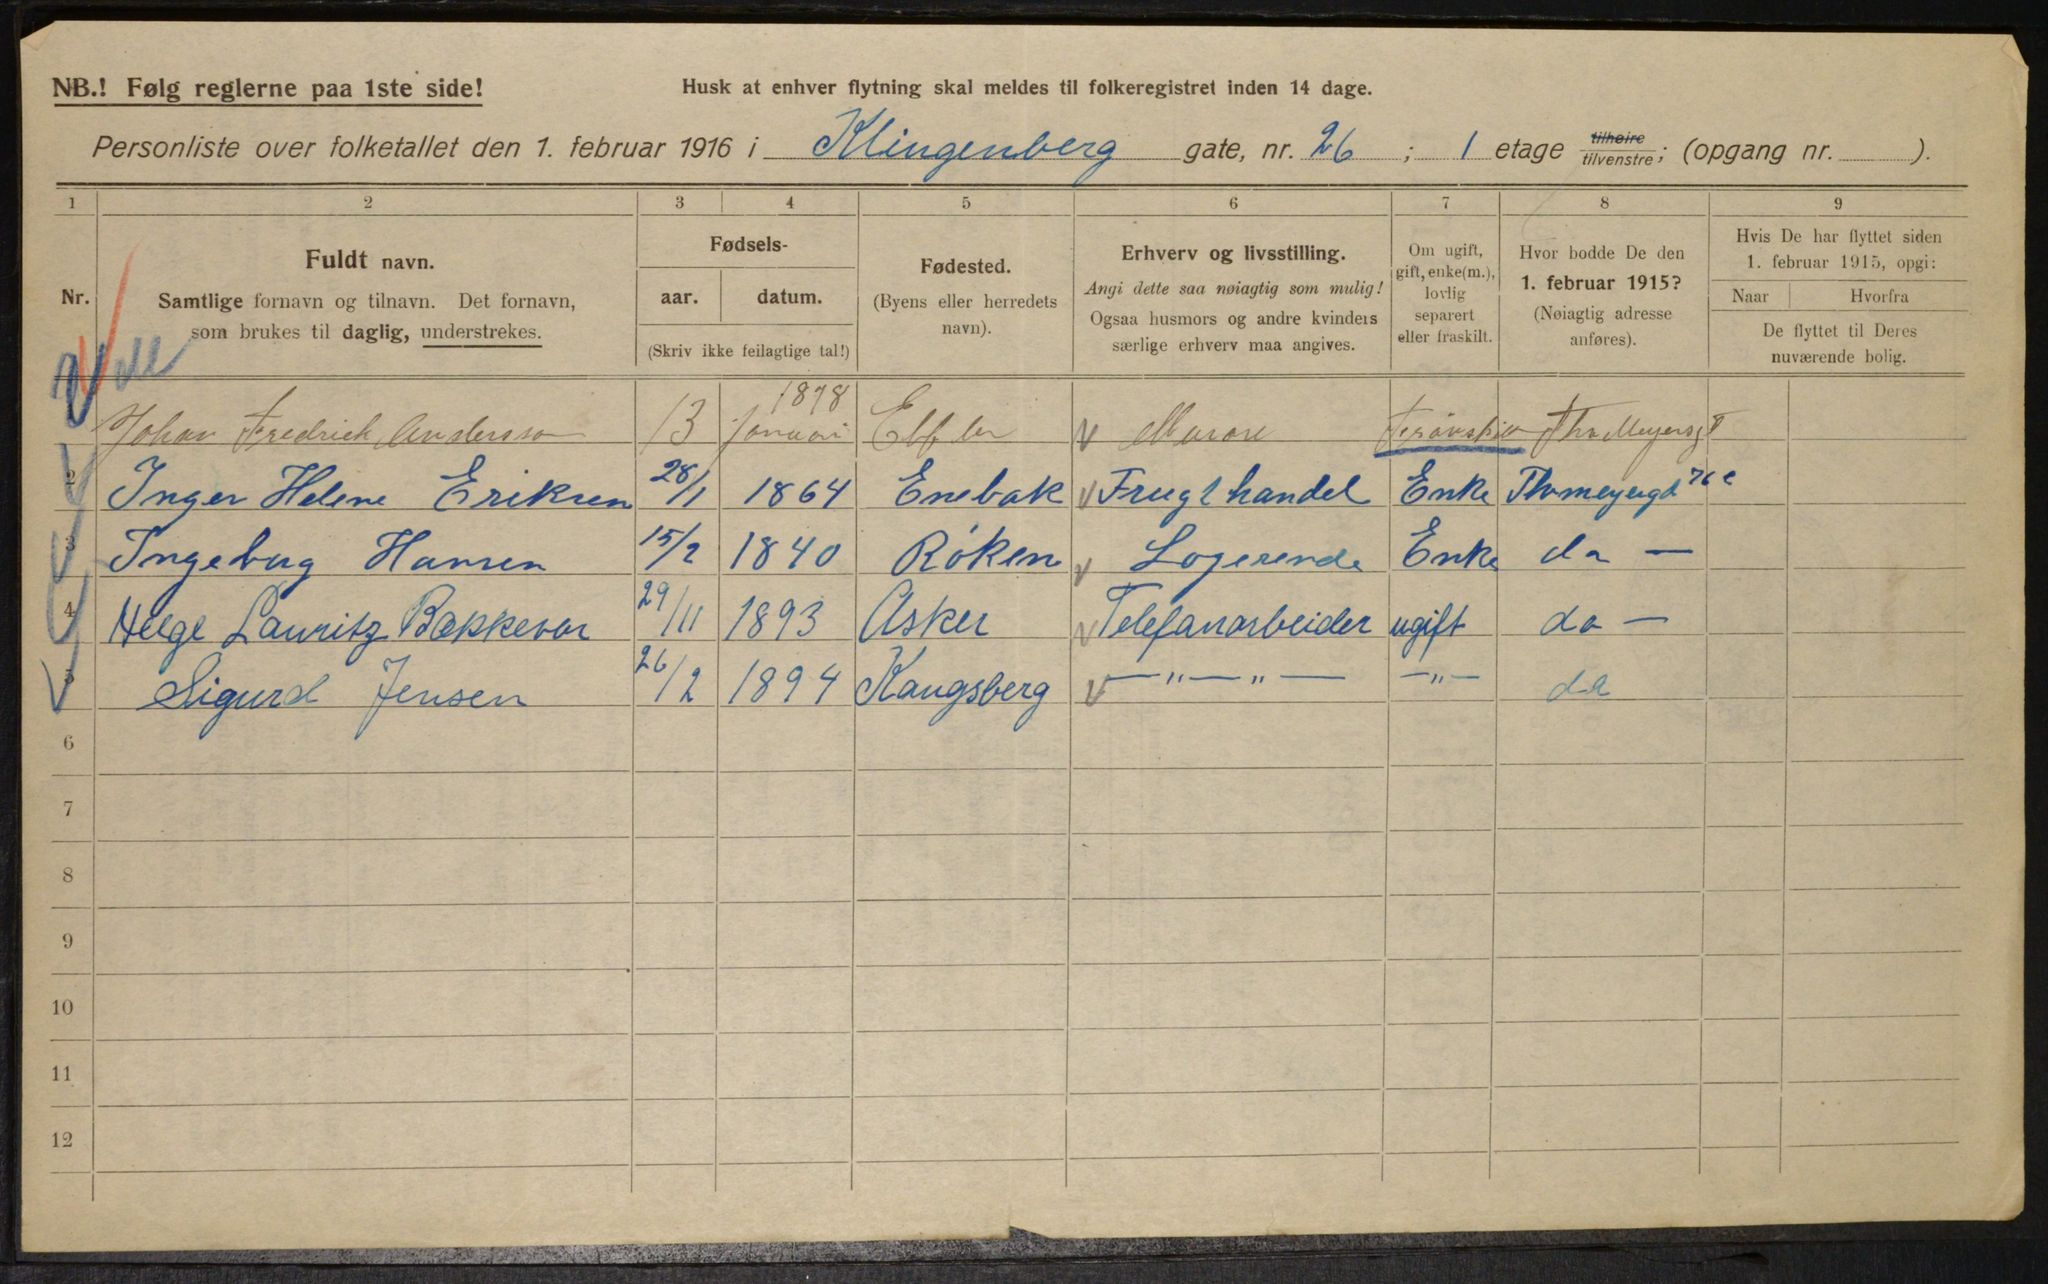 NB.! Følg reglerne paa 1ste side!
Husk at enhver flytning skal meldes til folkeregistret inden 14 dage.
Personliste over folketallet den 1. februar 1916 i Klingenberg gate, nr. 26 ; 1 etage tilhøire tilvenstre; (opgang nr. ).
1 2 3 4 5 6 7 8 9
Nr.
Fuldt navn.
Samtlige fornavn og tilnavn. Det fornavn,
som brukes til daglig, understrekes.
Fødsels-
aar. datum.
(Skriv ikke feilagtige tal!)
Fødested.
(Byens eller herredets
navn).
Erhverv og livsstilling.
Angi dette saa nøiagtig som mulig!
Ogsaa husmors og andre kvinders
særlige erhverv maa angives.
Om ugift,
gift, enke(m.),
lovlig
separert
eller fraskilt.
Hvor bodde De den
1. februar 1915?
(Nøiagtig adresse
anføres).
Hvis De har flyttet siden
1. februar 1915, opgi:
Naar Hvorfra
De flyttet til Deres
nuværende bolig.
Johan Fredrick Andersson 13 Januari 1878
2 Inger Helene Eriksen 28/1 1864 Enebak Frugthandel Enke Thvmeyergd 76 c
3 Ingebug Hansen 15/2 1840 Røken Logerende Enke da —
4 Helge Lauritz Bakkevar 29/11 1893 Asker Telefanarbeider ugift da —
5 Sigurd Jensen 26/2 1894 Kangsberg — " — " — — " — da
6
7
8
9
10
11
12